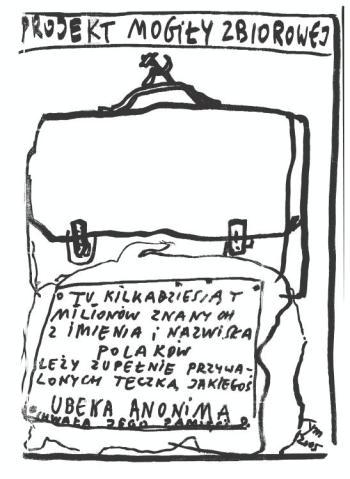 PROJEKT MOGIŁY ZBIOROWEJ
TU KILKADZIESIĄT
MILIONÓW ZNANYCH
Z IMIENIA i NAZWISKA
POLAKÓW
LEŻY ZUPEŁNIE PRZYWA-
LONYCH TECZKĄ JAKIEGOŚ
UBEKA ANONIMA
CHWAŁA JEGO PAMIĘCI
2005